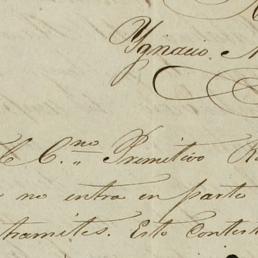 Ygnacio.
C.no Primitivo
no entra en parte
tramites. Esto Contest